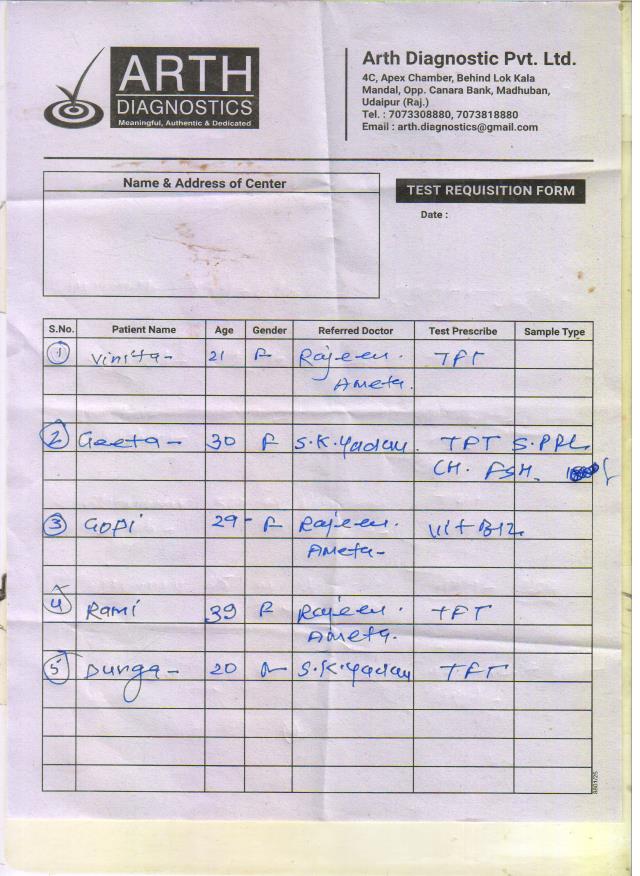 ARTH
DIAGNOSTICS
Meaningful, Authentic & Dedicated
Arth Diagnostic Pvt. Ltd.
4C, Apex Chamber, Behind Lok Kala
Mandal, Opp. Canara Bank, Madhuban,
Udaipur (Raj.)
Tel. : 7073308880, 7073818880
Email : arth.diagnostics@gmail.com
Name & Address of Center
TEST REQUISITION FORM
Date :
S.No. Patient Name Age Gender Referred Doctor Test Prescribe Sample Type
1 Vinita - 21 F Rajeev. TFT
Ameta.
2 Geeta - 30 F S.K.Yadav. TFT S.PRL
CH. FSH.
3 Gopi 29 - F Rajeev. Vit B12
Ameta -
4 Rami 39 F Rajeev. TFT
Ameta.
5 Durga - 20 S.K.Yadav TFT